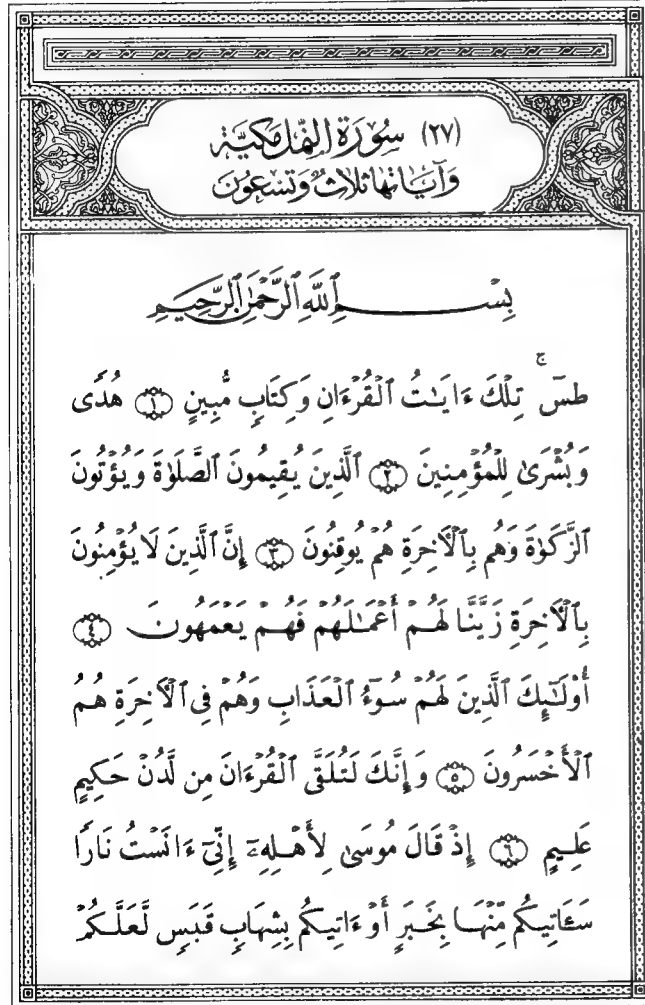 (٢٧) سُورَة النَّمْل مَكيَّة
وَآيَاتهَا ثَلَاثٌ وَتِسْعُونَ
بِسْمِ ٱللَّهِ ٱلرَّحْمَٰنِ ٱلرَّحِيمِ
طسٓ ۚ تِلْكَ ءَايَٰتُ ٱلْقُرْءَانِ وَكِتَابٍ مُّبِينٍ ۝١ هُدًى
وَبُشْرَىٰ لِلْمُؤْمِنِينَ ۝٢ ٱلَّذِينَ يُقِيمُونَ ٱلصَّلَوٰةَ وَيُؤْتُونَ
ٱلزَّكَوٰةَ وَهُم بِٱلْأَخِرَةِ هُمْ يُوقِنُونَ ۝٣ إِنَّ ٱلَّذِينَ لَا يُؤْمِنُونَ
بِٱلْأَخِرَةِ زَيَّنَّا لَهُمْ أَعْمَٰلَهُمْ فَهُمْ يَعْمَهُونَ ۝٤
أُوْلَٰٓئِكَ ٱلَّذِينَ لَهُمْ سُوٓءُ ٱلْعَذَابِ وَهُمْ فِى ٱلْأَخِرَةِ هُمُ
ٱلْأَخْسَرُونَ ۝٥ وَإِنَّكَ لَتُلَقَّى ٱلْقُرْءَانَ مِن لَّدُنْ حَكِيمٍ
عَلِيمٍ ۝٦ إِذْ قَالَ مُوسَىٰ لِأَهْلِهِۦٓ إِنِّىٓ ءَانَسْتُ نَارًا
سَـَٔاتِيكُم مِّنْهَا بِخَبَرٍ أَوْ ءَاتِيكُم بِشِهَابٍ قَبَسٍ لَّعَلَّكُمْ